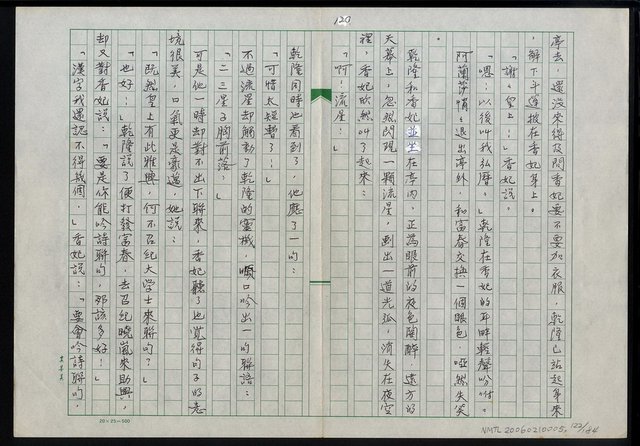 120
亭去，還沒來得及問香妃要不要加衣服，乾隆已站起身來
，解下斗篷披在香妃身上。
「謝々皇上！」香妃說。
「嗯！以後叫我弘曆。」乾隆在香妃的耳畔輕聲吩咐。
阿蘭莎慎々退出亭外，和富春交換一個眼色，啞然失笑
。
乾隆和香妃並坐在亭內，正為眼前的夜色陶醉，遠方的
天幕上，忽然閃現一顆流星，劃出一道光弧，消失在夜空
裡，香妃欣然叫了起來：
「啊！流星！」
乾隆同時也看到了，他應了一句：
「可惜太短暫了！」
不過流星卻觸動了乾隆的靈機，順口吟出一句聯語：
「二三星子胸前落！」
可是他一時卻對不出下聯來，香妃聽了也覺得句子的意
境很美，口氣更是豪邁，她說：
「既然皇上有此雅興，何不召紀大學士來聯句？」
「也好！」乾隆說了便打發富春，去召紀曉嵐來助興，
卻又對香妃說：「要是你能吟詩聯句，那該多好！」
「漢字我還認不得幾個，」香妃說：「要會吟詩聯句，
20×25=500
NMTL20060210005, 122/184